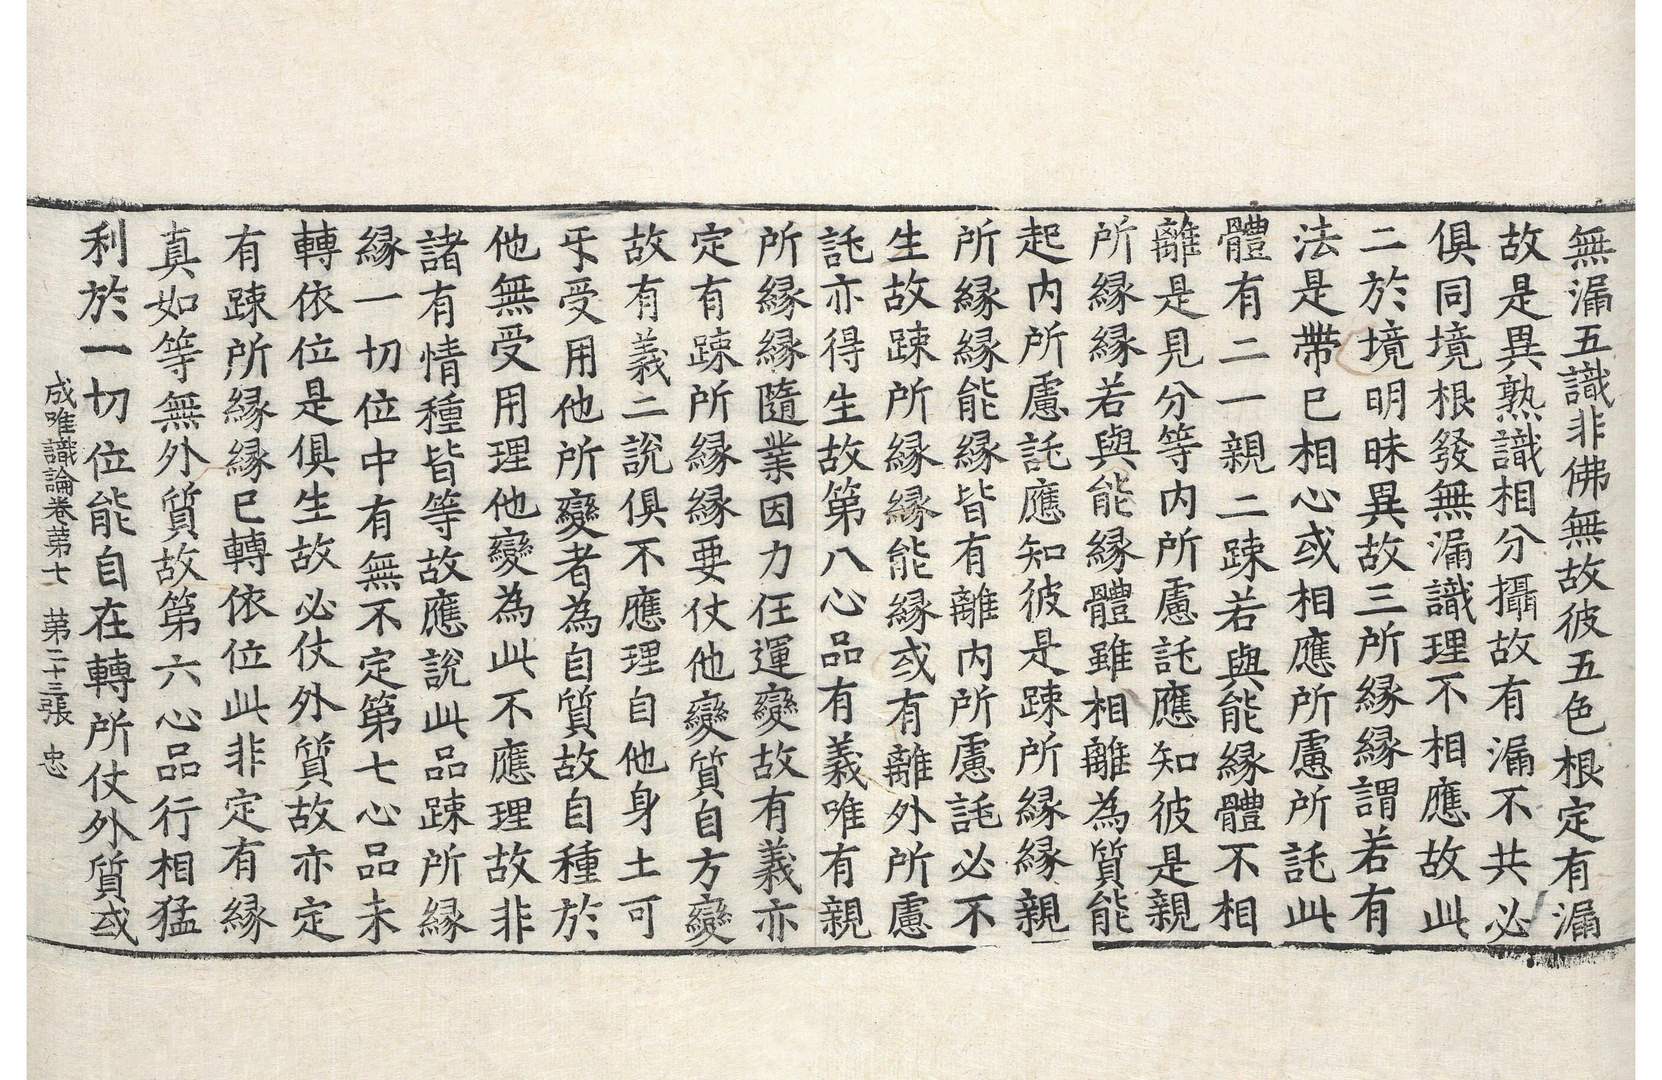 無漏五識非佛無故彼五色根定有漏
故是異熟識相分攝故有漏不共必
俱同境根發無漏識理不相應故此
二於境明昧異故三所縁縁謂若有
法是帶已相心或相應所慮所託此
體有二一親二踈若與能縁體不相
離是見分等内所慮託應知彼是親
所縁縁若與能縁體雖相離為質能
起内所慮託應知彼是踈所縁縁親
所縁縁能縁皆有離内所慮託必不
生故踈所縁縁能縁或有離外所慮
託亦得生故第八心品有義唯有親
所縁縁隨業因力任運變故有義亦
定有踈所縁縁要仗他變質自方變
故有義二說俱不應理自他身土可
㸦受用他所變者為自質故自種於
他無受用理他變為此不應理故非
諸有情種皆等故應說此品踈所縁
縁一切位中有無不定第七心品未
轉依位是俱生故必仗外質故亦定
有踈所縁縁已轉依位此非定有縁
真如等無外質故第六心品行相猛
利於一切位能自在轉所仗外質或
成唯識論卷第七 第二十三張 忠